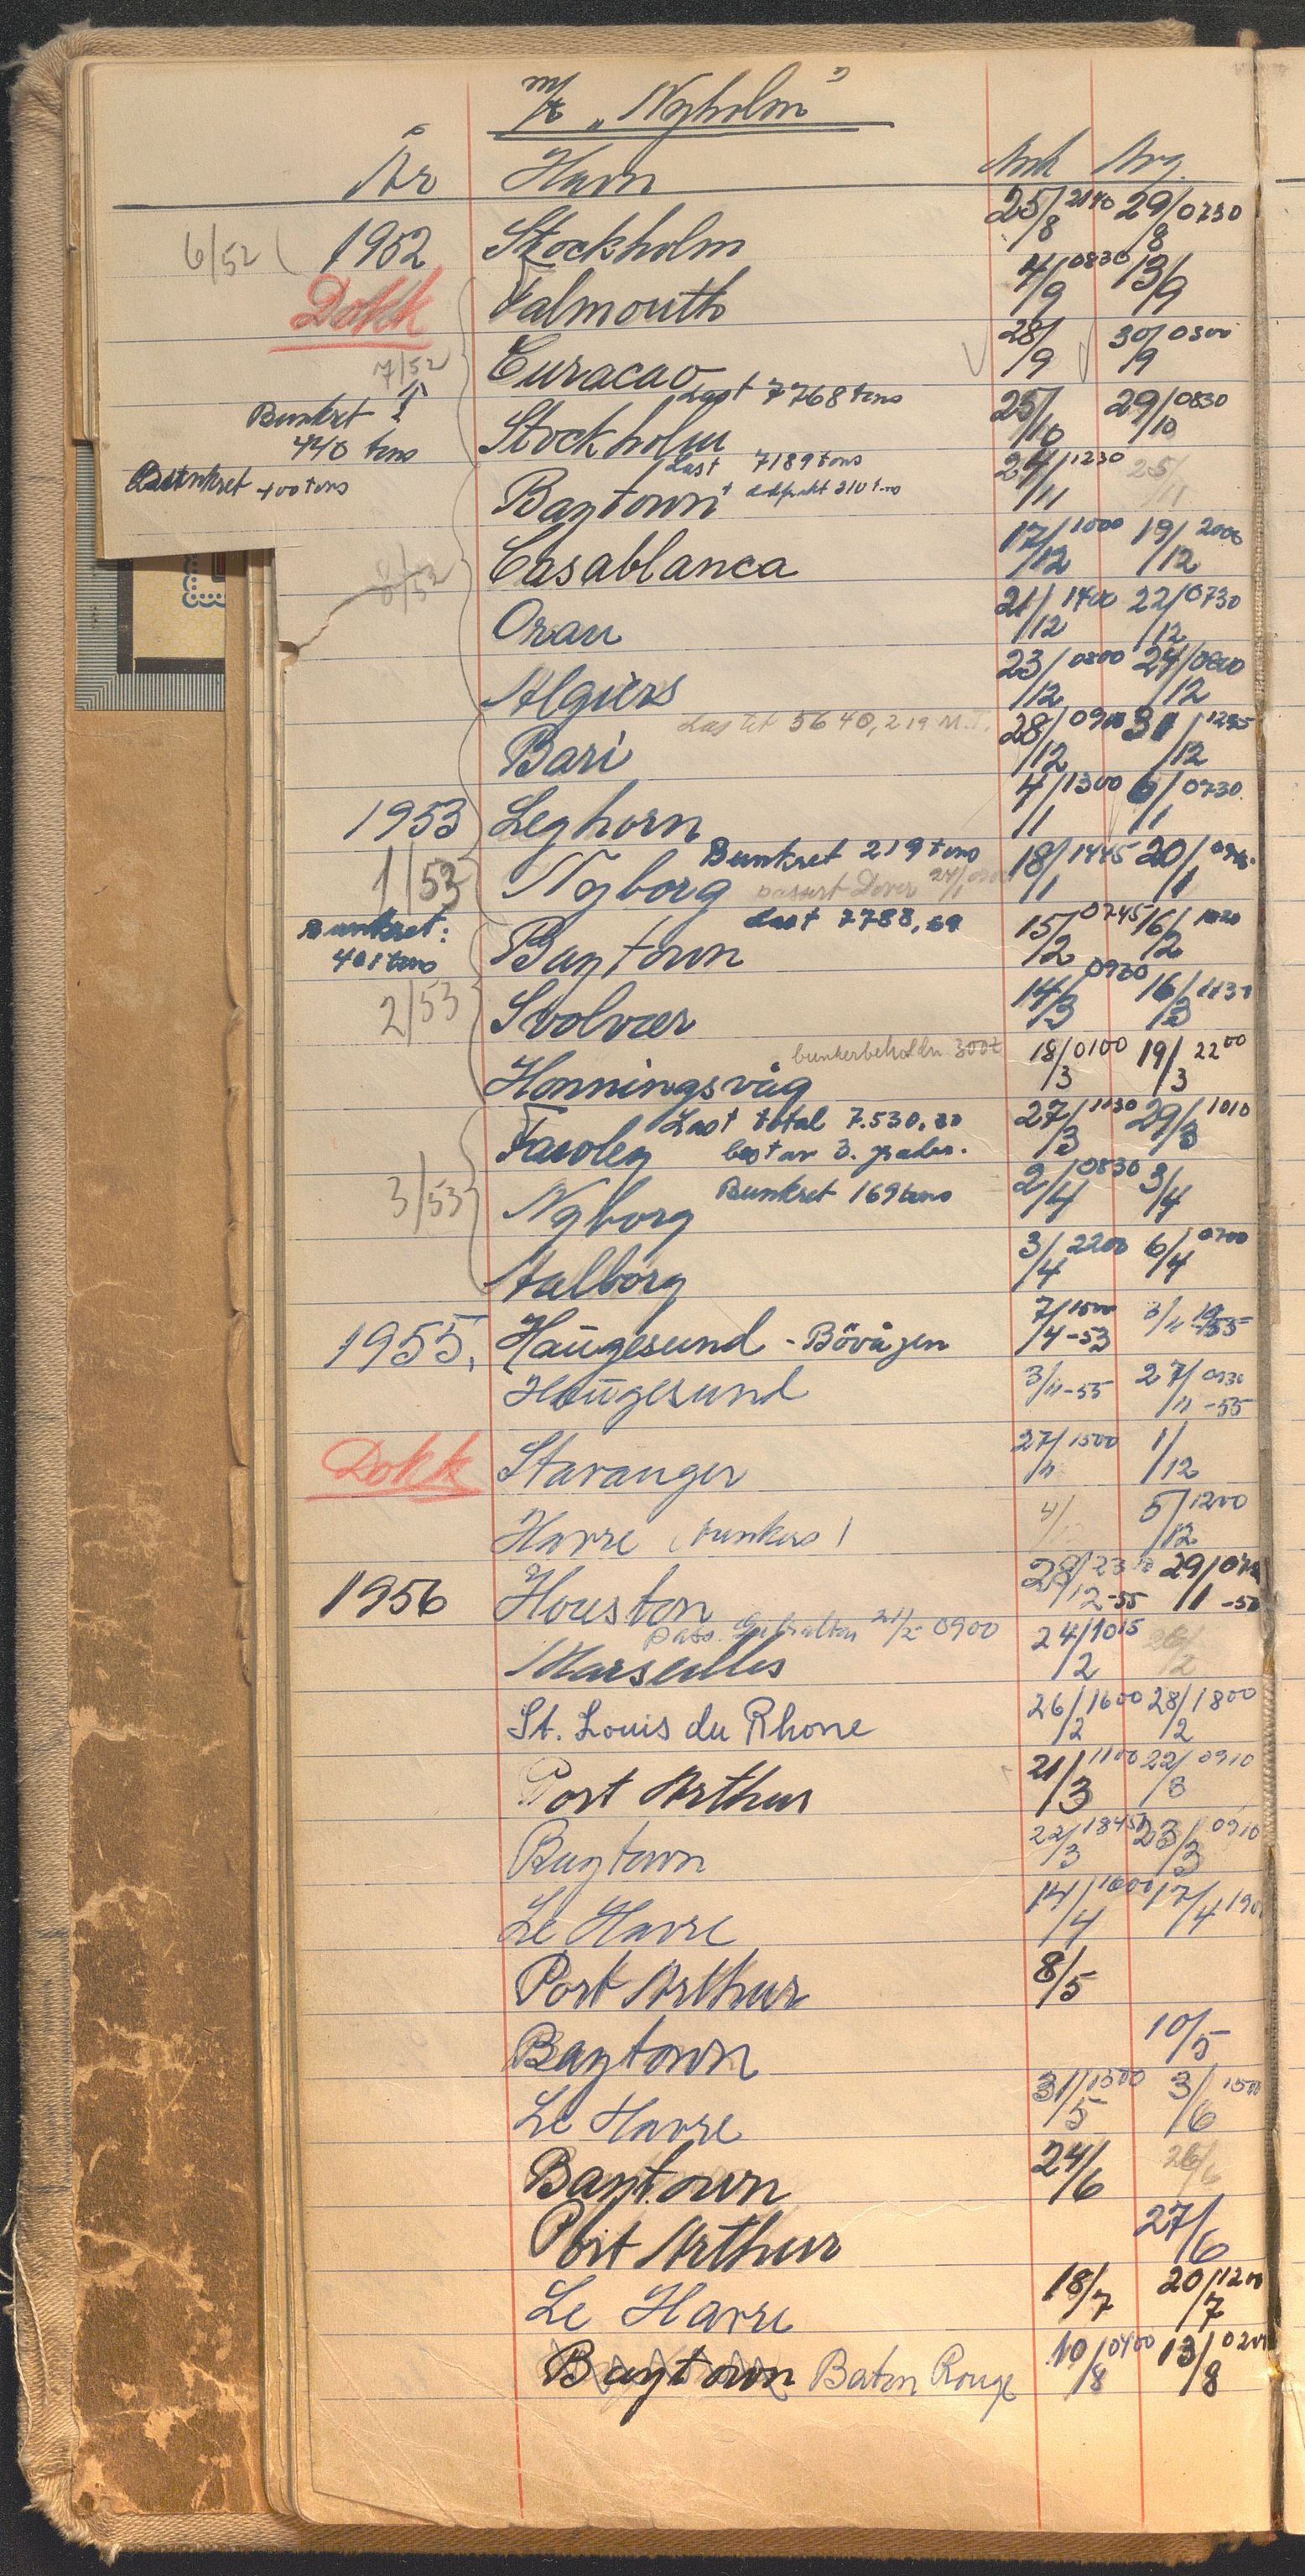 m/t „Nyholm"
År Havn Ank Avg.
6/52 1952 Stockholm 25/8 2140 29/8 0730
Dokk Falmouth 4/9 0830 13/9
7/52 Curacao 28/9 30/9 0300
Bunkret 440 tons Last 7768 tons
Stockholm 25/10 29/10 0830
Bunkret 400 tons Last 7189 tons
Baytown 24/11 1230 25/11
Casablanca 17/12 1000 19/12 2000
Oran 21/12 1400 22/12 0730
Algiers 23/12 0800 24/12 0800
Lastet 5640,219 M.T.
Bari 28/12 0900 31/12
1953 Leghorn 4/1 1300 6/1 0730
Bunkret 219 tons
1/53 Nyborg 18/1 1445 20/1
passert Dover 24/1
Bunkret: 401 tons Last 7788,69
Baytown 15/2 0745 16/2
2/53 Svolvær 14/3 0920 16/3 1130
bunkerbeholdn. 300t
Honningsvåg 18/3 0100 19/3 2200
Last total 7.530,
Fawley 27/3 1130 29/3 1010
best av 3. grader.
3/53 Bunkret 169 tons
Nyborg 2/4 0830 3/4
Aalborg 3/4 2200 6/4 0700
1955. Haugesund - Bövågen 7/4-53 1500 3/11 -55
Haugesund 3/11-55 27/11-55 0930
Dokk Stavanger 27/11 1500 1/12
Havre (bunkers) 4/ 5/12 1200
1956 Houston 28/12-55 29/1
pass. Gibraltar 21/2 0900
Marseilles 24/2 1015 26/2
St. Louis du Rhone 26/2 1600 28/2 1800
Port Arthur 21/3 1100 22/3 0910
Baytown 22/3 1845 23/3 0910
Le Havre 14/4 1600 17/4 190
Port Arthur 8/5
Baytown 10/5
Le Havre 31/5 1300 3/6 1500
Baytown 24/6 26/6
Port Arthur 27/6
Le Havre 18/7 20/7 1200
Baytown Baton Rouge 10/8 0400 13/8